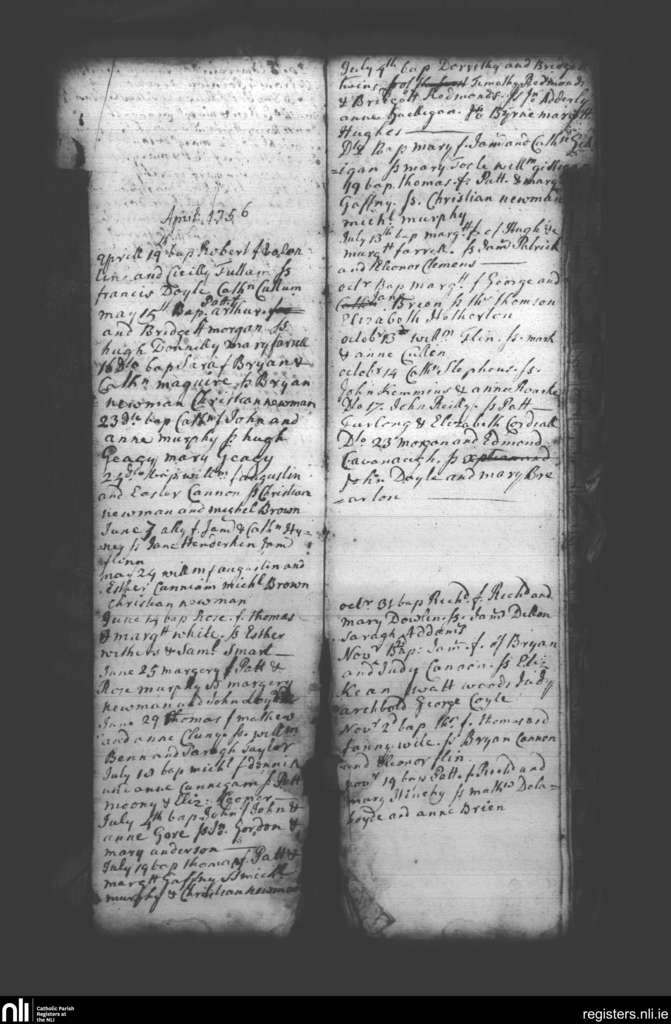 April 1756
Aprill 19 bap Robert f Valen
tine and Cicilly Tullam ss
francis Doyle Cathn Cullum
may 15th Bap. arthur f
Patt
and Bridgett morgan ss
hugh Donnilly mary farrell
16 Do bap Sara f Bryan &
Cathn maguire ss Bryan
newman Christian newman
23 do bap Cathn f John and
anne murphy ss hugh
Geagy mary Geagy
24 do bap willm f augustin
and Easter Cannon ss Christian
newman and michel Brown
June 7 ally f. Jams & Cathn
ney ss Jane Henderkin Jams
flinn
may 24 willm f augustin and
Esther Cunniam michl Brown
Christian newman
June 14 bap Rose f. thomas
& margtt white ss Esther
withers & Saml Smart
June 25 margery f Patt &
Rose murphy ss margery
newman and John
June 29 thomas f mathew
and anne Cluny ss willm
Benn and Saragh Taylor
July 18 bap michl f dennis
and anne Cunnigam ss Patt
moony & Eliz: Hooper
July 4th bap John f John &
anne Gore ss Jn Gordon &
mary anderson
July 19 bap thomas f. Patt &
margtt Gaffny ss michl
murphy & Christian newman
July 4th bap Dorrithy and Bridget
twins f of Timothy Redmonds
& Bridgett Redmonds ss Jn Adderly
anne Hacligan. Byrne margtt
Hughes
Do Bap mary f. Jams and Cathn Gill
igan ss mary Toole willm
19 bap thomas f. Patt. & margt
Gaffny. ss. Christian newman
michl murphy
July 13th bap margtt f. of Hugh &
margtt farrell. ss Jams Patrick
and Eleonor Clemens
octr Bap margtt f George and
Jane Breen ss ths thomson
Elizabeth Hotherton
octobr 13 willm Flin. ss. mark
& anne Cullen
octobr 14 Cathn Stephens. ss.
John Kemmins & anne Roarke
Do 17. John Reilly. ss Patt
Furlong & Elizabeth Cordeall
Do 23 morgan and Edmond
Cavanaugh. ss
John Doyle and mary Bre
arton
octr 31 bap Richd f. Richd and
mary Dowlin. ss. Jams Dillon
Saragh Addams
Novr Bap. Jams f. of Bryan
and Judy Canaan. ss Eliz
Kean watt woods Judy
archbold George Coyle
Novr 2d bap ths f. thomas and
fanny wile. ss Bryan Cannon
and Eleonor flin.
novr 19 bap Patt. f Richd and
mary ss mathw Dela
foyde and anne Brien
nli Catholic Parish
Registers at
the NLI
registers.nli.ie